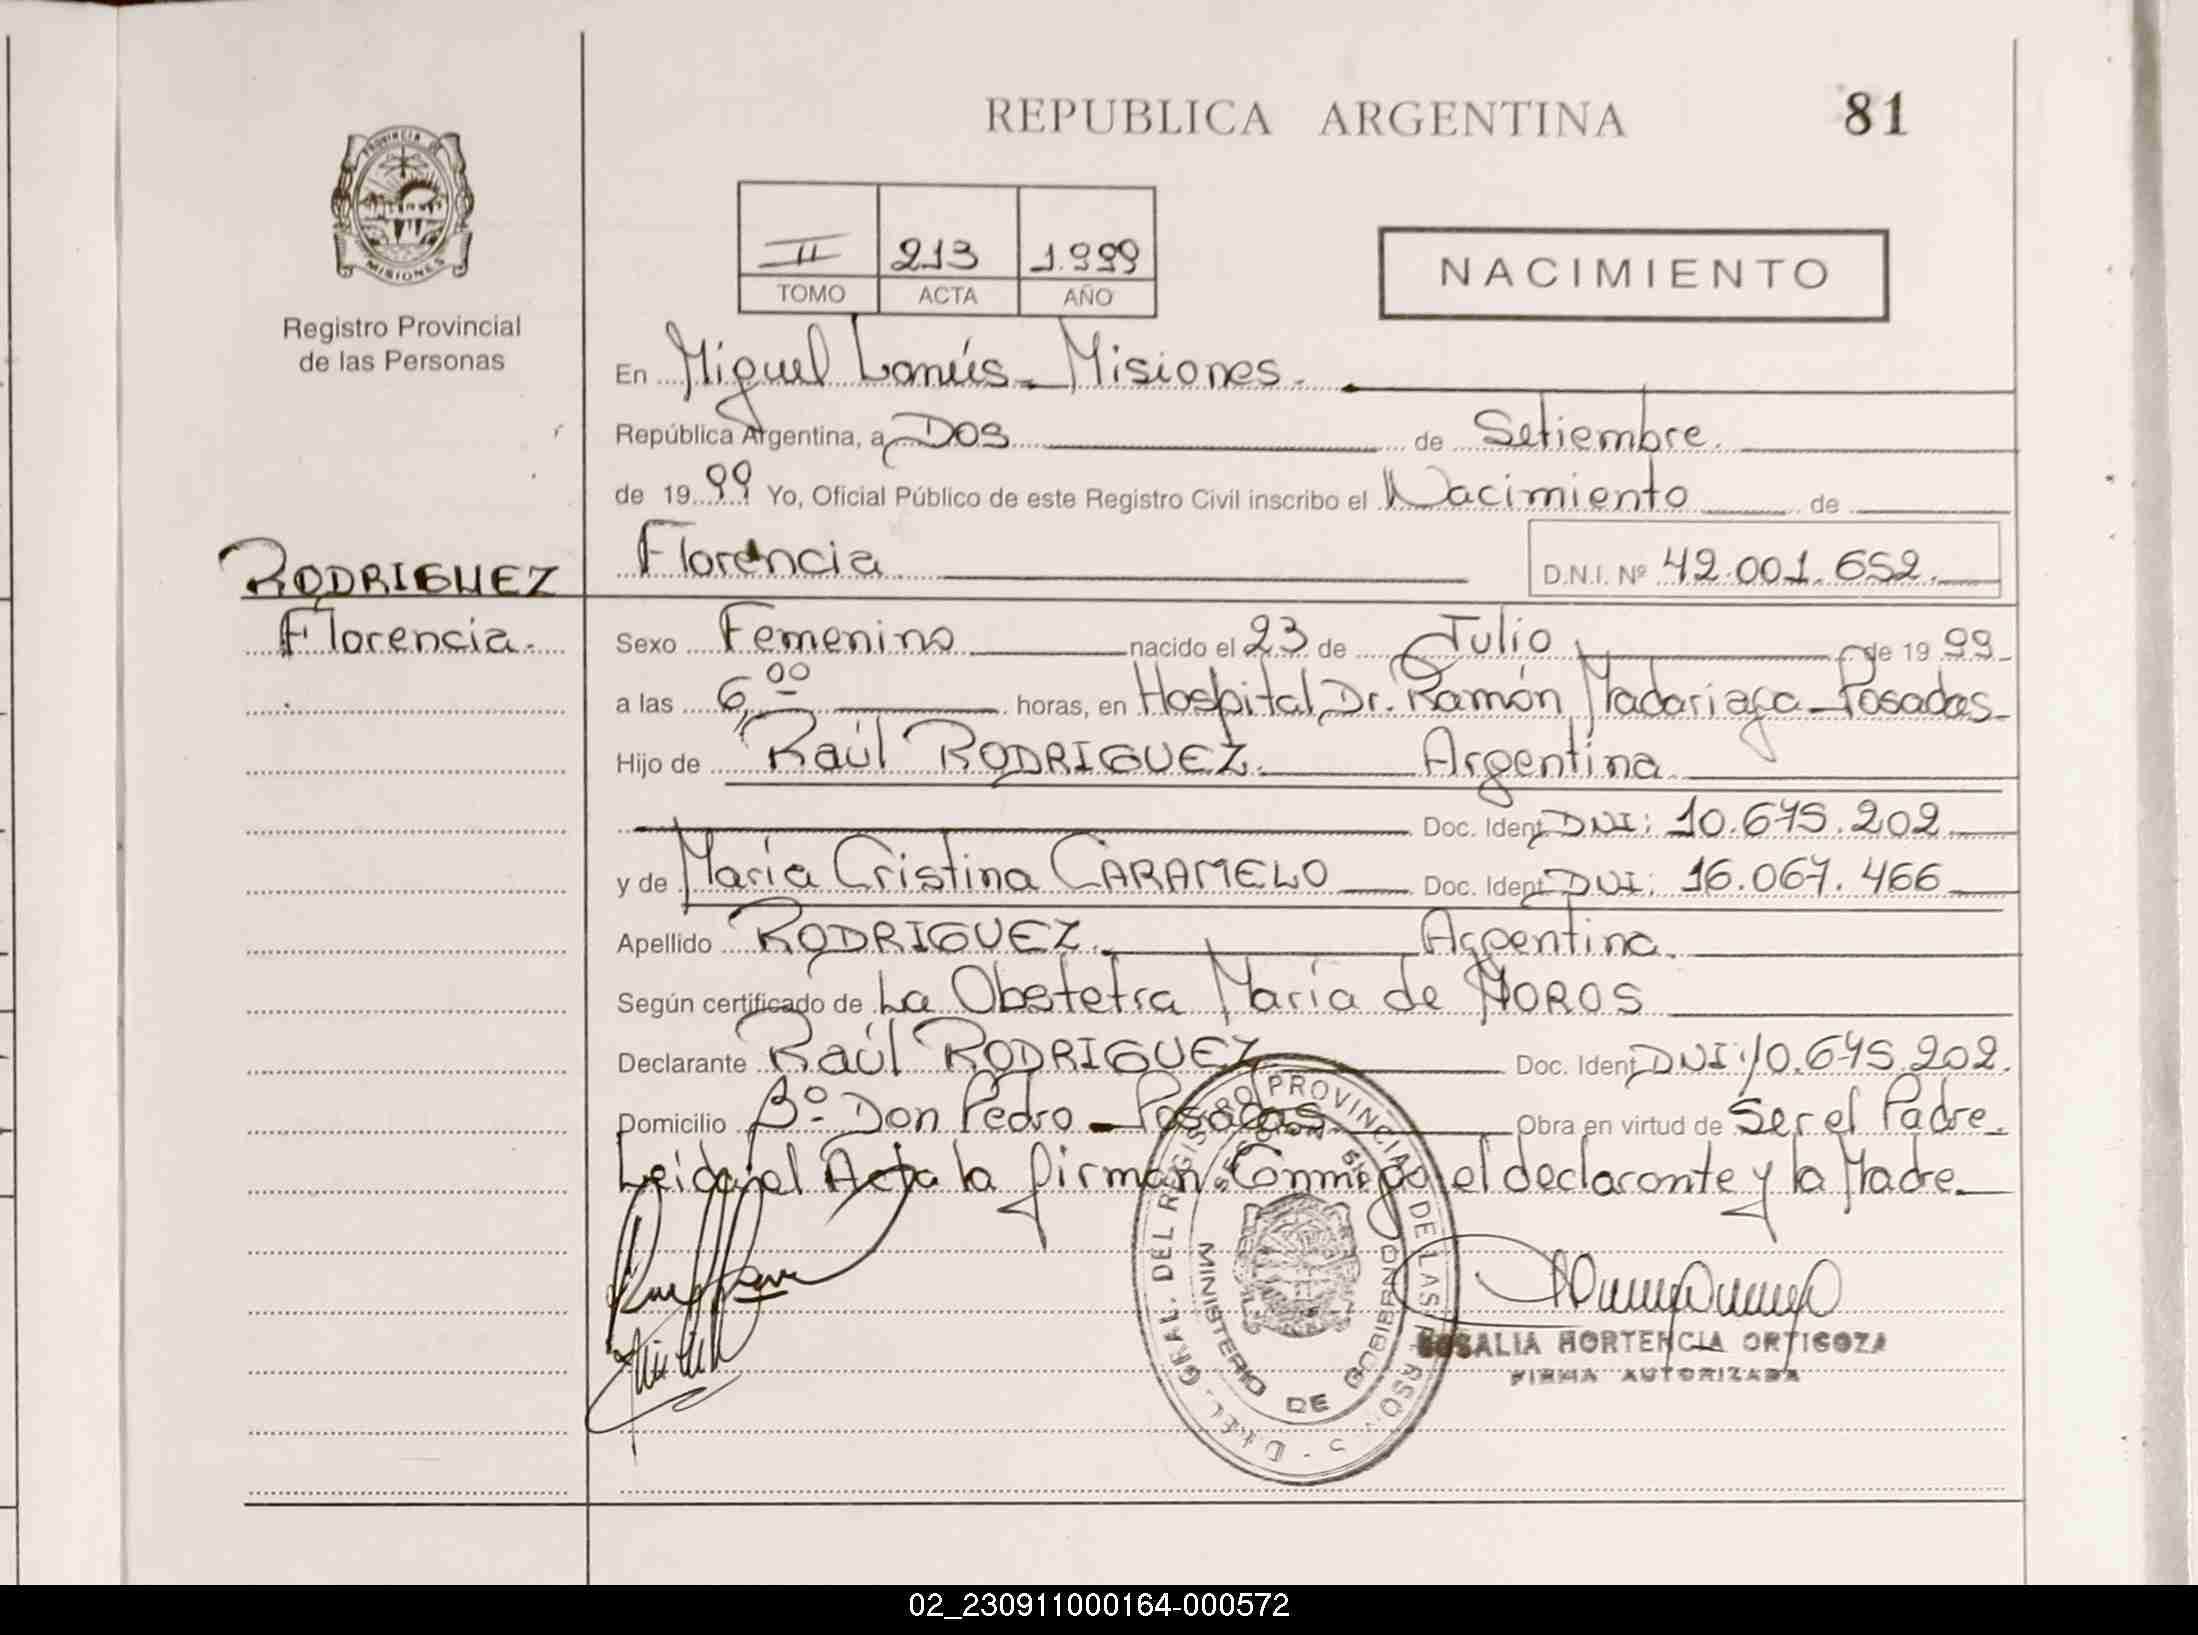 REPUBLICA ARGENTINA
81
PROVINCIA DE
MISIONES
Registro Provincial
de las Personas
II 213 1.999
TOMO ACTA AÑO
NACIMIENTO
En Miguel Lanús - Misiones.
República Argentina, a Dos de Setiembre.
de 19 99 Yo, Oficial Público de este Registro Civil inscribo el Nacimiento de
Florencia D.N.I. Nº 42.001.652.
RODRIGUEZ
Florencia.
Sexo Femenino nacido el 23 de Julio de 19 99
a las 6,00 horas, en Hospital Dr. Ramón Madariaga - Posadas
Hijo de Raúl RODRIGUEZ. Argentina.
Doc. Ident DNI: 10.675.202
y de María Cristina CARAMELO Doc. Ident DNI: 16.067.466
Apellido RODRIGUEZ. Argentina.
Según certificado de La Obstetra María de MOROS
Declarante Raúl RODRIGUEZ Doc. Ident DNI: 10.675.202.
Domicilio Bº Don Pedro - Posadas Obra en virtud de Ser el Padre.
Leida el Acta la firman Conmigo el declarante y la Madre.
GRAL. DEL REGISTRO PROVINCIAL DE LAS
MINISTERIO DE GOBIERNO
ROSALIA HORTENCIA ORTIGOZA
FIRMA AUTORIZADA
02_230911000164-000572